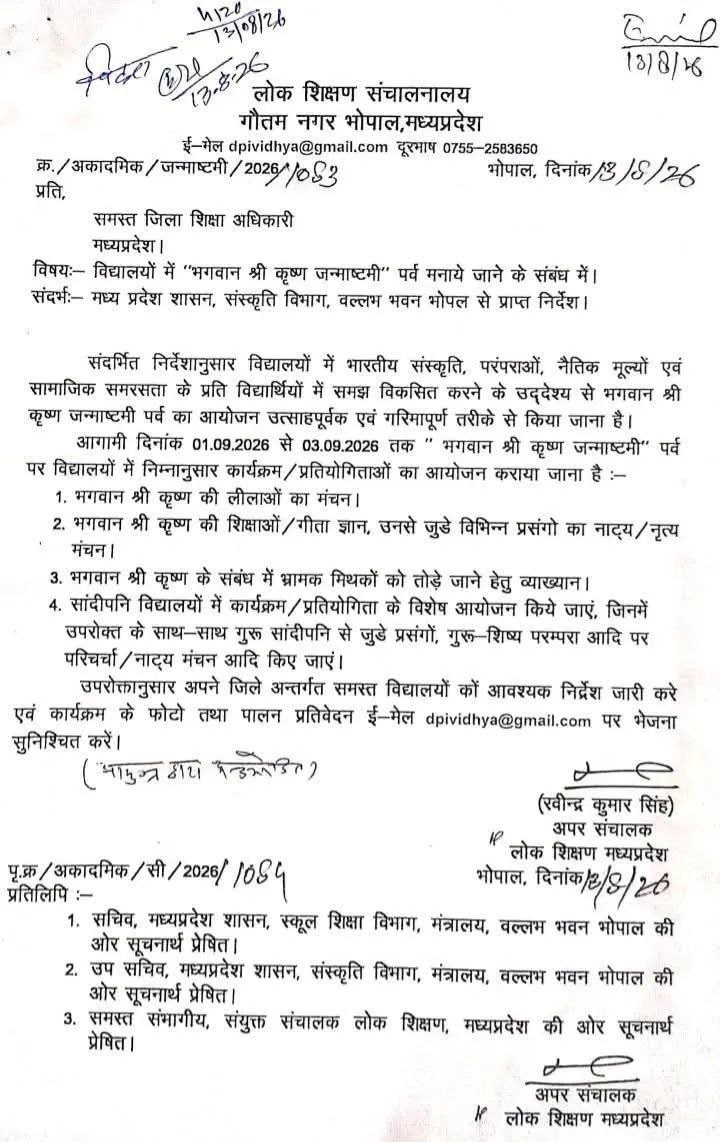 4120
13/08/26
13.8.26
Email
13/8/26
लोक शिक्षण संचालनालय
गौतम नगर भोपाल,मध्यप्रदेश
ई–मेल dpividhya@gmail.com दूरभाष 0755–2583650
क्र./अकादमिक/जन्माष्टमी/2026/1083 भोपाल, दिनांक 13/8/26
प्रति,
समस्त जिला शिक्षा अधिकारी
मध्यप्रदेश।
विषयः– विद्यालयों में "भगवान श्री कृष्ण जन्माष्टमी" पर्व मनाये जाने के संबंध में।
संदर्भः– मध्य प्रदेश शासन, संस्कृति विभाग, वल्लभ भवन भोपल से प्राप्त निर्देश।
संदर्भित निर्देशानुसार विद्यालयों में भारतीय संस्कृति, परंपराओं, नैतिक मूल्यों एवं
सामाजिक समरसता के प्रति विद्यार्थियों में समझ विकसित करने के उद्देश्य से भगवान श्री
कृष्ण जन्माष्टमी पर्व का आयोजन उत्साहपूर्वक एवं गरिमापूर्ण तरीके से किया जाना है।
आगामी दिनांक 01.09.2026 से 03.09.2026 तक " भगवान श्री कृष्ण जन्माष्टमी" पर्व
पर विद्यालयों में निम्नानुसार कार्यक्रम/प्रतियोगिताओं का आयोजन कराया जाना है :–
1. भगवान श्री कृष्ण की लीलाओं का मंचन।
2. भगवान श्री कृष्ण की शिक्षाओं/गीता ज्ञान, उनसे जुडे विभिन्न प्रसंगो का नाट्य/नृत्य
मंचन।
3. भगवान श्री कृष्ण के संबंध में भ्रामक मिथकों को तोड़े जाने हेतु व्याख्यान।
4. सांदीपनि विद्यालयों में कार्यक्रम/प्रतियोगिता के विशेष आयोजन किये जाएं, जिनमें
उपरोक्त के साथ–साथ गुरू सांदीपनि से जुडे प्रसंगों, गुरू–शिष्य परम्परा आदि पर
परिचर्चा/नाट्य मंचन आदि किए जाएं।
उपरोक्तानुसार अपने जिले अन्तर्गत समस्त विद्यालयों कों आवश्यक निर्द्रेश जारी करे
एवं कार्यक्रम के फोटो तथा पालन प्रतिवेदन ई–मेल dpividhya@gmail.com पर भेजना
सुनिश्चित करें।
(आयुक्त द्वारा अनुमोदित)
(रवीन्द्र कुमार सिंह)
अपर संचालक
लोक शिक्षण मध्यप्रदेश
पृ.क्र/अकादमिक/सी/2026/1084 भोपाल, दिनांक 13/8/26
प्रतिलिपि :–
1. सचिव, मध्यप्रदेश शासन, स्कूल शिक्षा विभाग, मंत्रालय, वल्लभ भवन भोपाल की
ओर सूचनार्थ प्रेषित।
2. उप सचिव, मध्यप्रदेश शासन, संस्कृति विभाग, मंत्रालय, वल्लभ भवन भोपाल की
ओर सूचनार्थ प्रेषित।
3. समस्त संभागीय, संयुक्त संचालक लोक शिक्षण, मध्यप्रदेश की ओर सूचनार्थ
प्रेषित।
अपर संचालक
लोक शिक्षण मध्यप्रदेश